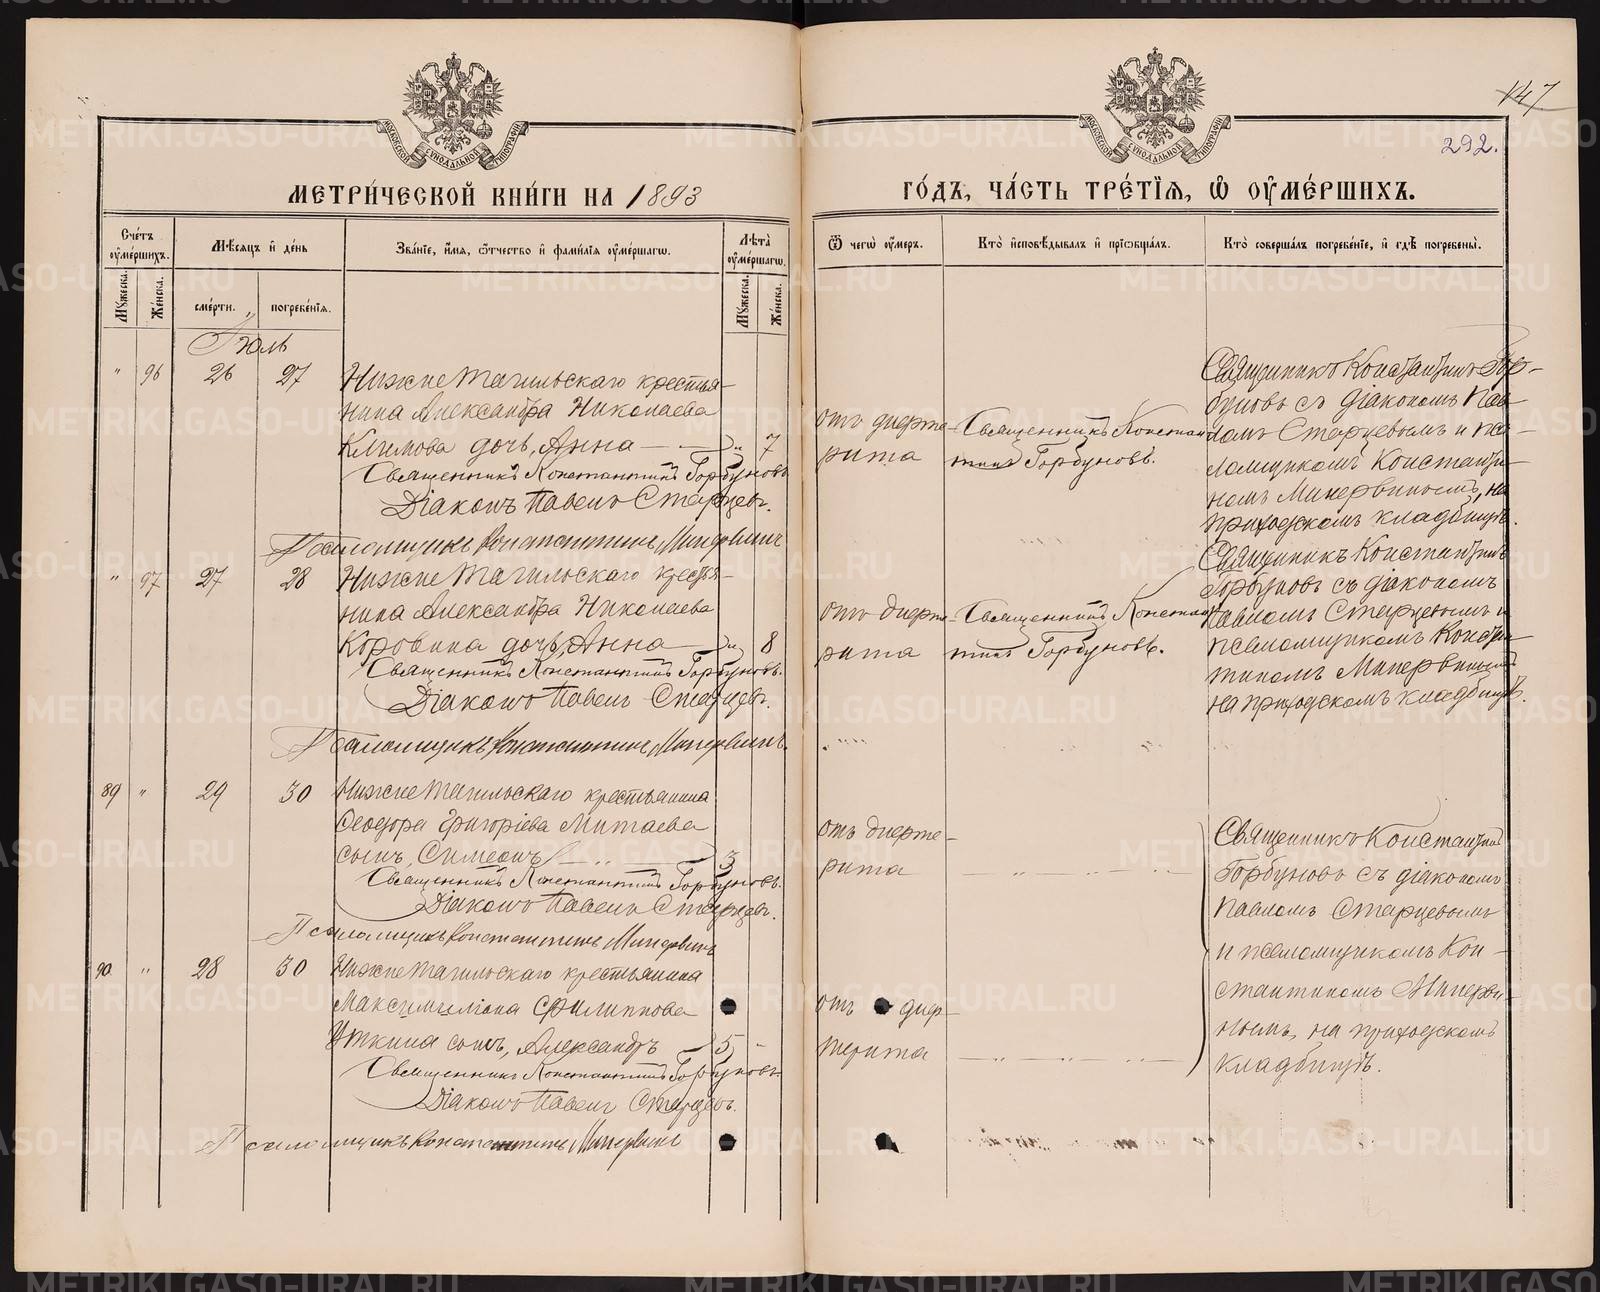 147
292.
МЕТРИ́ЧЕСКОЙ КНИ́ГИ НА 1893
ГО́ДЪ, ЧА́СТЬ ТРЕ́ТІЯ, Ѡ ОУМЕ́РШИХЪ.
Сче́тъ оуме́ршихъ.
Мꙋжеска.
Же́нска.
Мѣсяцъ и де́нь
сме́рти.
погребе́нія.
Зва́ніе, и́мя, о́тчество и фами́лія оуме́ршагѡ.
Лѣта̀ оуме́ршагѡ.
Мꙋжеска.
Же́нска.
Ѿ чегѡ̀ оу́меръ.
Кто̀ и҆сповѣ́дывалъ и прїѡбща́лъ.
Кто̀ соверша́лъ погребе́ніе, и гдѣ̀ погребены̀.
Іюль
" 96 26 27
Нижнетагильскаго крестья-
нина Александра Николаева
Климова дочь, Анна — " 7
Священникъ Константинъ Горбуновъ
Діаконъ Павелъ Старцевъ.
Псаломщикъ Константинъ Минервинъ
отъ дифте-
рита
Священникъ Констан-
тинъ Горбуновъ.
Священникъ Константинъ Гор-
буновъ съ діакономъ Пав-
ломъ Старцевымъ и пса-
ломщикомъ Константи-
номъ Минервинымъ, на
приходскомъ кладбищѣ.
" 97 27 28
Нижнетагильскаго крестья-
нина Александра Николаева
Коровина дочь, Анна — " 8
Священникъ Константинъ Горбуновъ.
Діаконъ Павелъ Старцевъ.
Псаломщикъ Константинъ Минервинъ.
отъ дифте-
рита
Священникъ Констан-
тинъ Горбуновъ.
Священникъ Константинъ
Горбуновъ съ діакономъ
Павломъ Старцевымъ и
псаломщикомъ Констан-
тиномъ Минервинымъ
на приходскомъ кладбищѣ.
89 " 29 30
Нижнетагильскаго крестьянина
Ѳеодора Григоріева Митаева
сынъ, Симеонъ — " — 3
Священникъ Константинъ Горбуновъ.
Діаконъ Павелъ Старцевъ.
Псаломщикъ Константинъ Минервинъ
отъ дифте-
рита
— " — " —
90. " 28 30
Нижнетагильскаго крестьянина
Максимиліана Филиппова
Уткина сынъ, Александръ 5 "
Священникъ Константинъ Горбуновъ.
Діаконъ Павелъ Старцевъ.
Псаломщикъ Константинъ Минервинъ
отъ диф-
терита
— " — " —
Священникъ Константинъ
Горбуновъ съ діакономъ
Павломъ Старцевымъ
и псаломщикомъ Кон-
стантиномъ Минерви-
нымъ, на приходскомъ
кладбищѣ.
METRIKI.GASO-URAL.RU